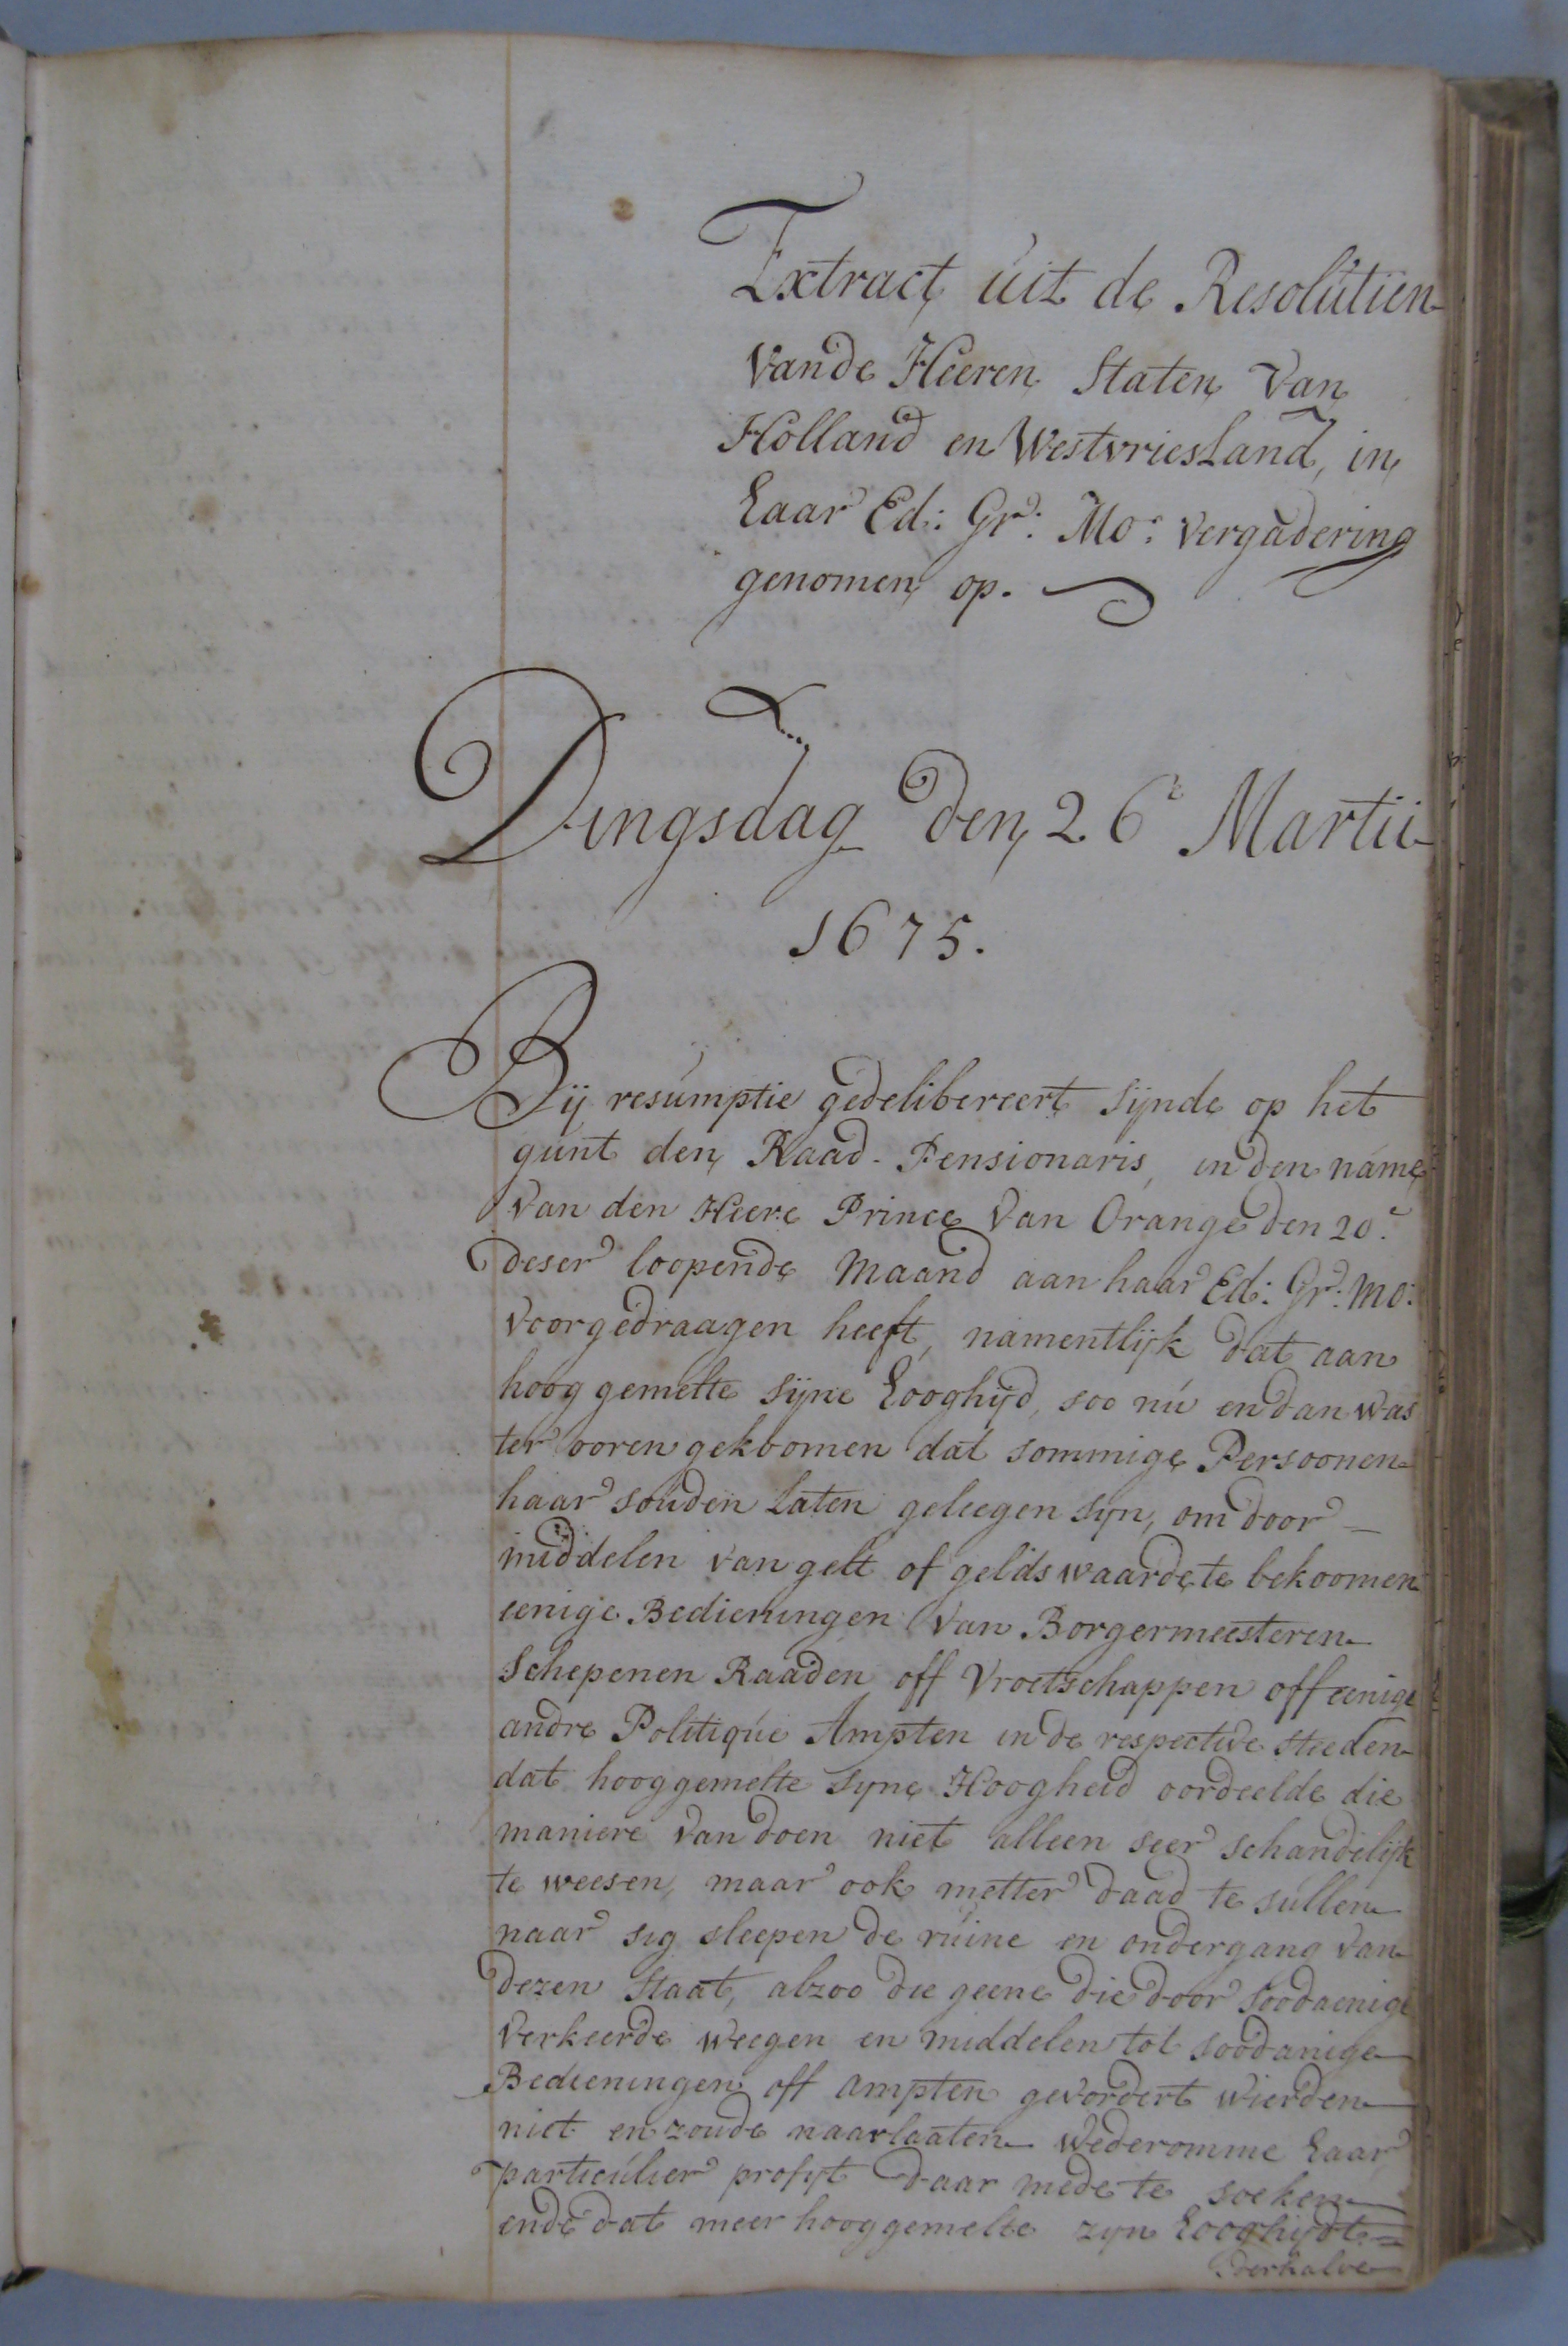 Extract uit de Resolutien
Vande Heeren Staten Van
Holland en WestvriesLand, in
haar Ed: Gr: Mo: Vergadering
genomen op.
Dingsdag den 26e Martii
1675.
Bij resumptie gedelibereert sijnde op het
gunt den Raad-Pensionaris, in den name
Van den Heere Prince Van Orange den 20e
deser loopende Maand aan haar Ed: Gr: Mo:
Voorgedraagen heeft, namentlijk dat aan
hoog gemelte sijne hooghijd, soo nu en dan was
ter ooren gekoomen dat sommige Persoonen
haar souden Laten geleegen syn, om door
middelen van gelt of gelds waarde te bekoomen
eenige Bedieningen Van Borgermeesteren
Schepenen Raaden off Vroetschappen off eenige
andre Politique Ampten in de respective steeden
dat hooggemelte syne Hoogheid oordeelde die
maniere Van doen niet alleen seer schandelijk
te weesen, maar ook metter daad te sullen
naar sig sleepen de ruine en ondergang Van
dezen Staat, alzoo die geene die door soodaenige
Verkeerde weegen en middelen tot soodanige
Bedieningen off ampten gevordert wierden
niet en zoude naarlaaten Wederomme haar
particulier profyt daar mede te soeken
ende dat meer hooggemelte zyn hooghijdt
derhalve